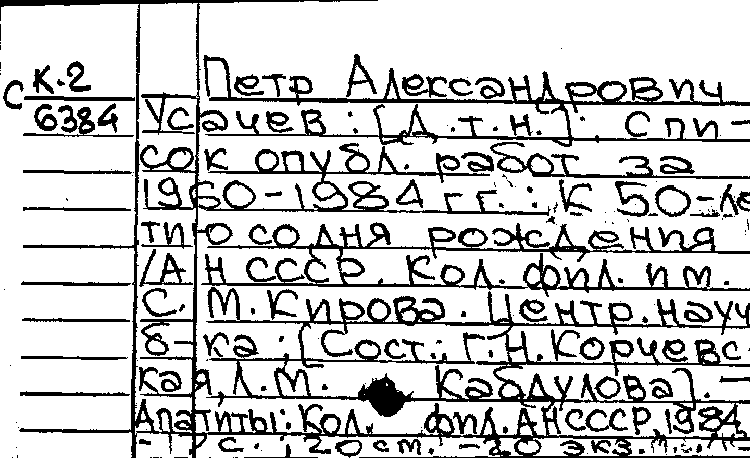 К.2 Петр Александрович
С 6384 Усачев : [Д.т.н.] : Спи-
сок опубл. работ за
1960-1984 гг. : К 50-ле-
тию со дня рождения
/АН СССР. Кол. фил. им.
С. М. Кирова. Центр. науч
б-ка ; [Сост.: Г.Н. Корчевс-
кая, Л.М. Кабдулова]. –
Апатиты: Кол. фил. АН СССР, 1984
с. ; 20 см. – 20 экз.